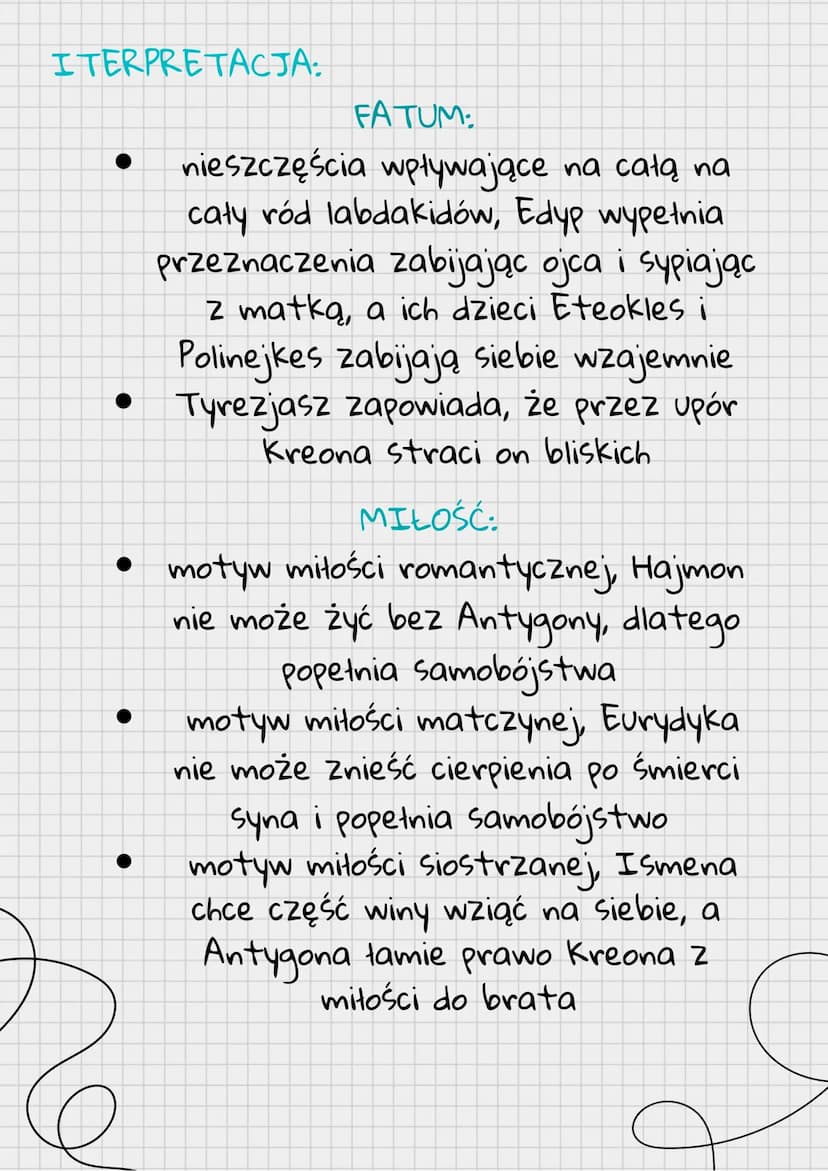 ITERPRETACJA:
FATUM:
• nieszczęścia wpływające na całą na
cały ród labdakidów, Edyp wypełnia
przeznaczenia zabijając ojca i sypiając
z matką, a ich dzieci Eteokles i
Polinejkes zabijają siebie wzajemnie
• Tyrezjasz zapowiada, że przez upór
Kreona straci on bliskich
MIŁOŚĆ:
• motyw miłości romantycznej, Hajmon
nie może żyć bez Antygony, dlatego
popełnia samobójstwa
• motyw miłości matczynej, Eurydyka
nie może znieść cierpienia po śmierci
syna i popełnia samobójstwo
• motyw miłości siostrzanej, Ismena
chce część winy wziąć na siebie, a
Antygona łamie prawo Kreona z
miłości do brata